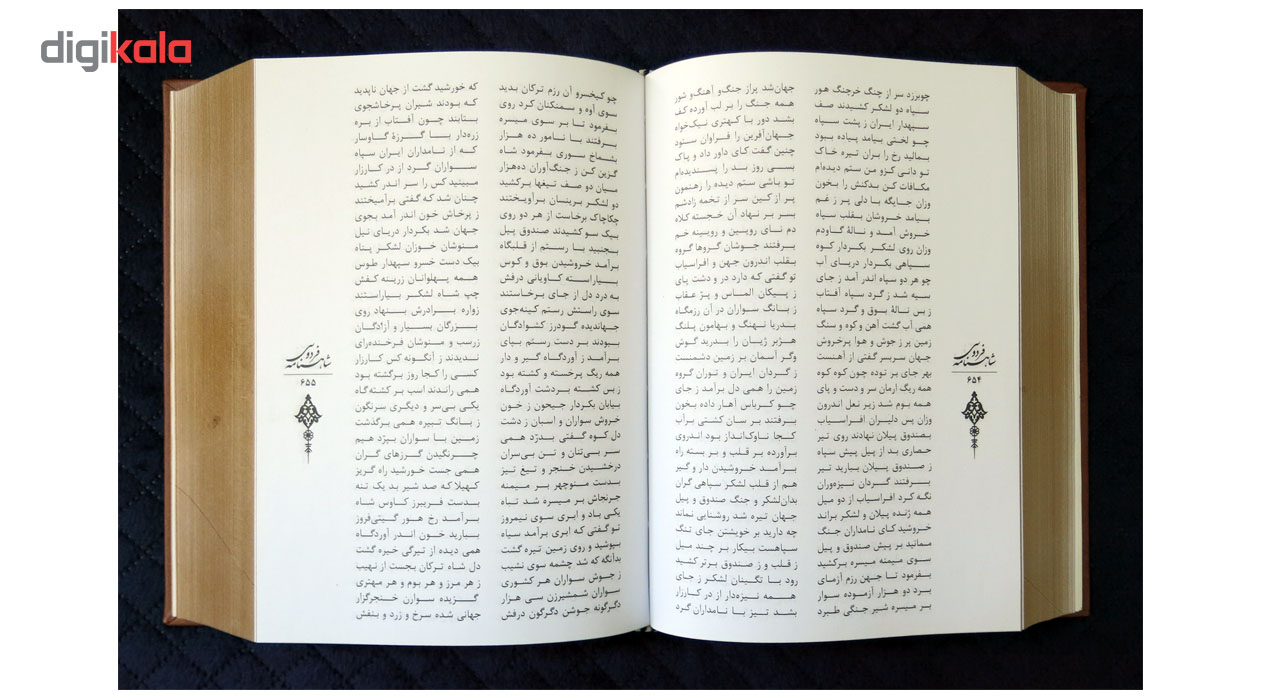 چوبرزد سر از چنگ خرچنگ هور جهان‌شد پراز جنگ‌و آهنگ‌و شور
سپاه دو لشکر کشیدند صف همه جنگ را بر لب آورده کف
سپهدار ایران ز پشت سپاه بشد دور با کهتری نیک‌خواه
چو لختی بیامد پیاده ببود جهان‌آفرین را فراوان ستود
بمالید رخ را بران تیره خاک چنین گفت کای داور داد و پاک
تو دانی کزو من ستم دیده‌ام بسی روز بد را پسندیده‌ام
مکافات کن بدکنش را بخون تو باشی ستم دیده را رهنمون
وزان جایگه با دلی پر ز غم پر از کین سر از تخمه زادشم
بیامد خروشان بقلب سپاه بسر بر نهاد آن خجسته کلاه
خروش آمد و نالهٔ گاودم دم نای رویین و رویینه خم
وزان روی لشکر بکردار کوه برفتند جوشان گروها گروه
سپاهی بکردار دریای آب بقلب اندرون جهن و افراسیاب
چو هر دو سپاه اندر آمد ز جای تو گفتی که دارد در و دشت پای
سیه شد ز گرد سپاه آفتاب ز پیکان الماس و پرّ عقاب
زبس نالهٔ بوق و گرد سپاه ز بانگ سواران در آن رزمگاه
همی آب گشت آهن و کوه و سنگ بدریا نهنگ و بهامون پلنگ
زمین پر ز جوش و هوا پرخروش هژبر ژیان را بدرید گوش
جهان سربسر گفتی از آهنست وگر آسمان بر زمین دشمنست
بهر جای بر توده چون کوه کوه ز گردان ایران و توران گروه
همه ریگ ارمان سر و دست و پای زمین را همی دل برآمد ز جای
همه بوم شد زیر نعل اندرون چو کرباس آهار داده بخون
وزان پس دلیران افراسیاب برفتند بر سان کشتی برآب
بصندوق پیلان نهادند روی کجا ناوک‌انداز بود اندروی
حصاری بد از پیل پیش سپاه برآورده بر قلب و بر بسته راه
ز صندوق پیلان ببارید تیر برآمد خروشیدن دار و گیر
برفتند گردان نیزه‌وران هم از قلب لشکر سپاهی گران
نگه کرد افراسیاب از دو میل بدان‌لشکر و جنگ صندوق و پیل
همه ژنده پیلان و لشکر براند جهان تیره شد روشنایی نماند
خروشید کای نامداران جنگ چه دارید بر خویشتن جای تنگ
ممانید بر پیش صندوق و پیل سپاهست بیکار بر چند میل
سوی میمنه میسره برکشید ز قلب و ز صندوق برتر کشید
بفرمود تا جهن رزم آزمای رود با تگینان لشکر ز جای
برد دو هزار آزموده سوار همه نیزه‌دار از در کارزار
بر میسره شیر جنگی طبرد بشد تیز با نامداران گرد
شاهنامه فردوسی
۶۵۴
چو کیخسرو آن رزم ترکان بدید که خورشید گشت از جهان ناپدید
سوی آوه و سمنکنان کرد روی که بودند شیران پرخاشجوی
بفرمود تا بر سوی میسره بتابند چون آفتاب از بره
برفتند با نامور ده هزار زره‌دار با گرزهٔ گاوسار
بشماخ سوری بفرمود شاه که از نامداران ایران سپاه
گزین کن ز جنگ‌آوران ده‌هزار سواران گرد از در کارزار
میان دو صف تیغها برکشید مبینید کس را سر اندر کشید
دو لشکر برینسان برآویختند چنان شد که گفتی برآمیختند
چکاچاک برخاست از هر دو روی ز پرخاش خون اندر آمد بجوی
بیک سو کشیدند صندوق پیل جهان شد بکردار دریای نیل
بجنبید با رستم از قلبگاه منوشان خوزان لشکر پناه
برآمد خروشیدن بوق و کوس بیک دست خسرو سپهدار طوس
بیاراسته کاویانی درفش همه پهلوانان زرینه کفش
به درد دل از جای برخاستند چپ شاه لشکر بیاراستند
سوی راستش رستم کینه‌جوی زواره برادرش بنهاد روی
جهاندیده گودرز کشوادگان بزرگان بسیار و آزادگان
ببودند بر دست رستم بپای زرسب و منوشان فرخنده‌رای
برآمد ز آوردگاه گیر و دار ندیدند زآنگونه کس کارزار
همه ریگ پرخسته و کشته بود کسی را کجا روز برگشته بود
زبس کشته بردشت آوردگاه همی راندند اسب بر کشته‌گاه
بیابان بکردار جیحون ز خون یکی بی‌سر و دیگری سرنگون
خروش سواران و اسبان ز دشت ز بانگ تبیره همی برگذشت
دل کوه گفتی بدرّد همی زمین با سواران بپرّد همی
سر بی‌تنان و تن بی‌سران چرنگیدن گرزهای گران
درخشیدن خنجر و تیغ تیز همی جست خورشید راه گریز
بدست منوچهر بر میمنه کهیلا که صد شیر بد یک تنه
جرنجاش بر میسره شد تباه بدست فریبرز کاوس شاه
یکی باد و ابری سوی نیمروز برآمد رخ هور گیتی‌فروز
تو گفتی که ابری برآمد سیاه ببارید خون اندر آوردگاه
بپوشید و روی زمین تیره گشت همی دیده از تیرگی خیره گشت
بدآنگه که شد چشمه سوی نشیب دل شاه ترکان بجست از نهیب
ز جوش سواران هر کشوری ز هر مرز و هر بوم و هر مهتری
سواران شمشیرزن سی هزار گزیده سوارن خنجرگزار
دگرگونه جوشن دگرگون درفش جهانی شده سرخ و زرد و بنفش
شاهنامه فردوسی
۶۵۵
digikala